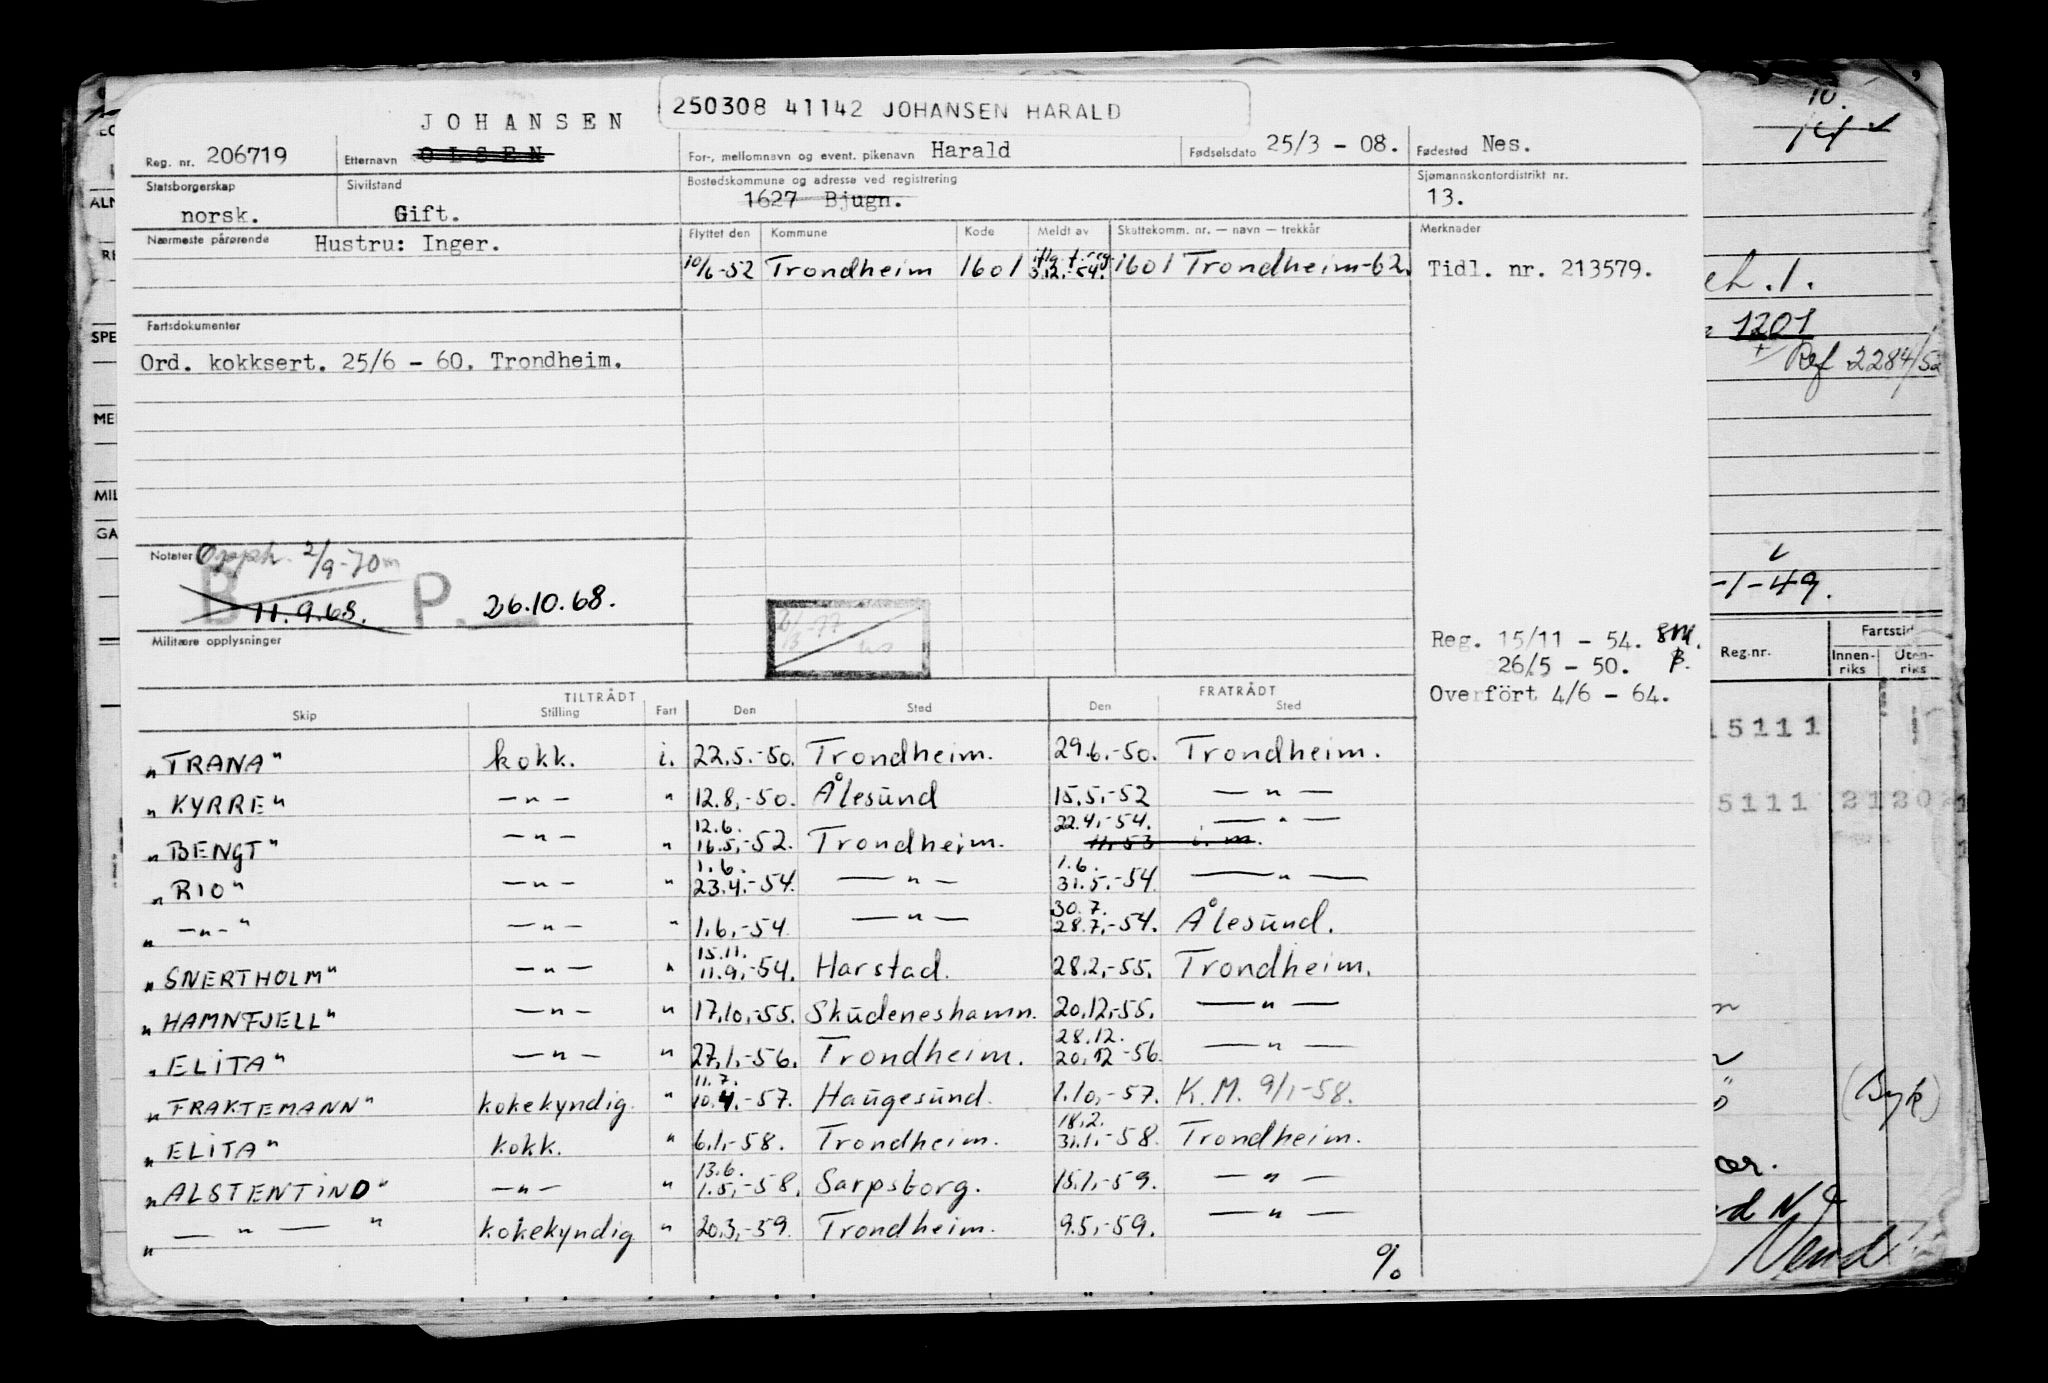 250308 41142 JOHANSEN HARALD
JOHANSEN
Reg. nr. 206719 Etternavn OLSEN For-, mellomnavn og event. pikenavn Harald Fødselsdato 25/3 - 08. Fødested Nes.
Statsborgerskap Sivilstand Bostedskommune og adresse ved registrering Sjømannskontordistrikt nr.
norsk. Gift. 1627 Bjugn. 13.
Nærmeste pårørende Hustru: Inger. Flyttet den Kommune Kode Meldt av Skattekomm. nr. — navn — trekkår Merknader
10/6-52 Trondheim 1601 3.12.-54. 1601 Trondheim-62. Tidl. nr. 213579.
Fartsdokumenter
Ord. kokksert. 25/6 - 60. Trondheim.
Notater Opph. 2/9-70
B 11.9.68. P. 26.10.68.
Militære opplysninger
Reg. 15/11 - 54.
26/5 - 50. B.
Overfört 4/6 - 64.
TILTRÅDT FRATRÅDT
Skip Stilling Fart Den Sted Den Sted
"TRANA" kokk. i. 22.5.-50. Trondheim. 29.6.-50. Trondheim.
"KYRRE" —"— " 12.8.-50. Ålesund 15.5.-52 —"—
12.6. 22.4.-54. —"—
"BENGT" —"— " 16.5.-52. Trondheim. 11.53 i.m.
1.6. 1.6.
"RIO" —"— " 23.4.-54. —"— 31.5.-54 —"—
30.7.
"—"—" —"— " 1.6.-54 —"— 28.7.-54. Ålesund.
15.11.
"SNERTHOLM" —"— " 11.9.-54. Harstad. 28.2.-55. Trondheim.
"HAMNFJELL" —"— " 17.10.-55. Skudeneshamn. 20.12.-55. —"—
28.12.
"ELITA" —"— " 27.1.-56. Trondheim. 20.12-56. —"—
11.7.
"FRAKTEMANN" kokekyndig. " 10.4.-57. Haugesund. 1.10.-57. K.M. 9/1-58.
18.2.
"ELITA" kokk. " 6.1.-58. Trondheim. 31.1.-58. Trondheim.
13.6.
"ALSTENTIND" —"— " 1.5.-58. Sarpsborg. 15.1.-59. —"—
"—"—" kokekyndig " 20.3.-59. Trondheim. 9.5.-59. —"—
%
10.
14
1.
1201
Ref 2284/52
-1-49.
Reg.nr. Fartstid
Innen-riks Uten-riks
15111
5111 2120
(Byk)
ALN
SPE
MIL
GA